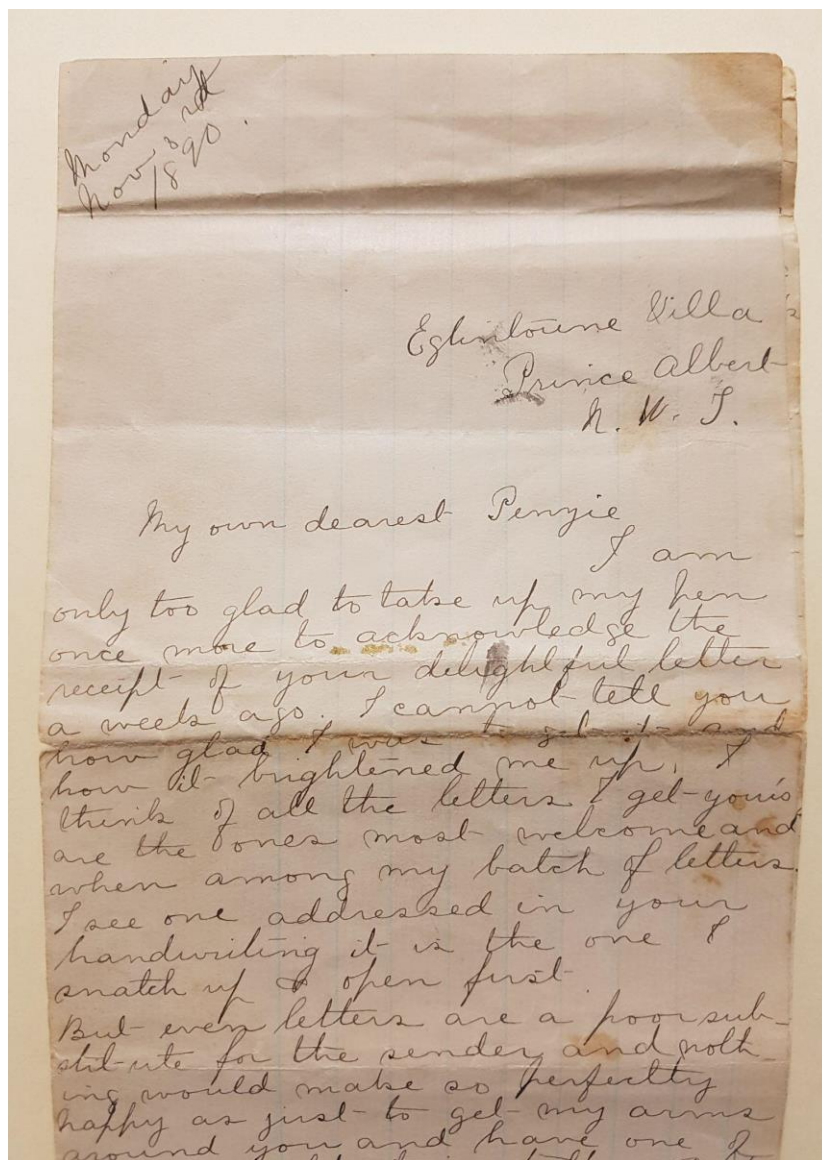 Monday
Nov 3rd
1890.
Eglintoune Villa
Prince Albert
N. W. T.
My own dearest Penzie
I am
only too glad to take up my pen
once more to acknowledge the
receipt of your delightful letter
a week ago. I cannot tell you
how glad I was to get it and
how it brightened me up. I
think of all the letters I get yours
are the ones most welcome and
when among my batch of letters
I see one addressed in your
handwriting it is the one I
snatch up & open first.
But even letters are a poor sub-
stitute for the sender and noth-
ing would make so perfectly
happy as just to get my arms
around you and have one of